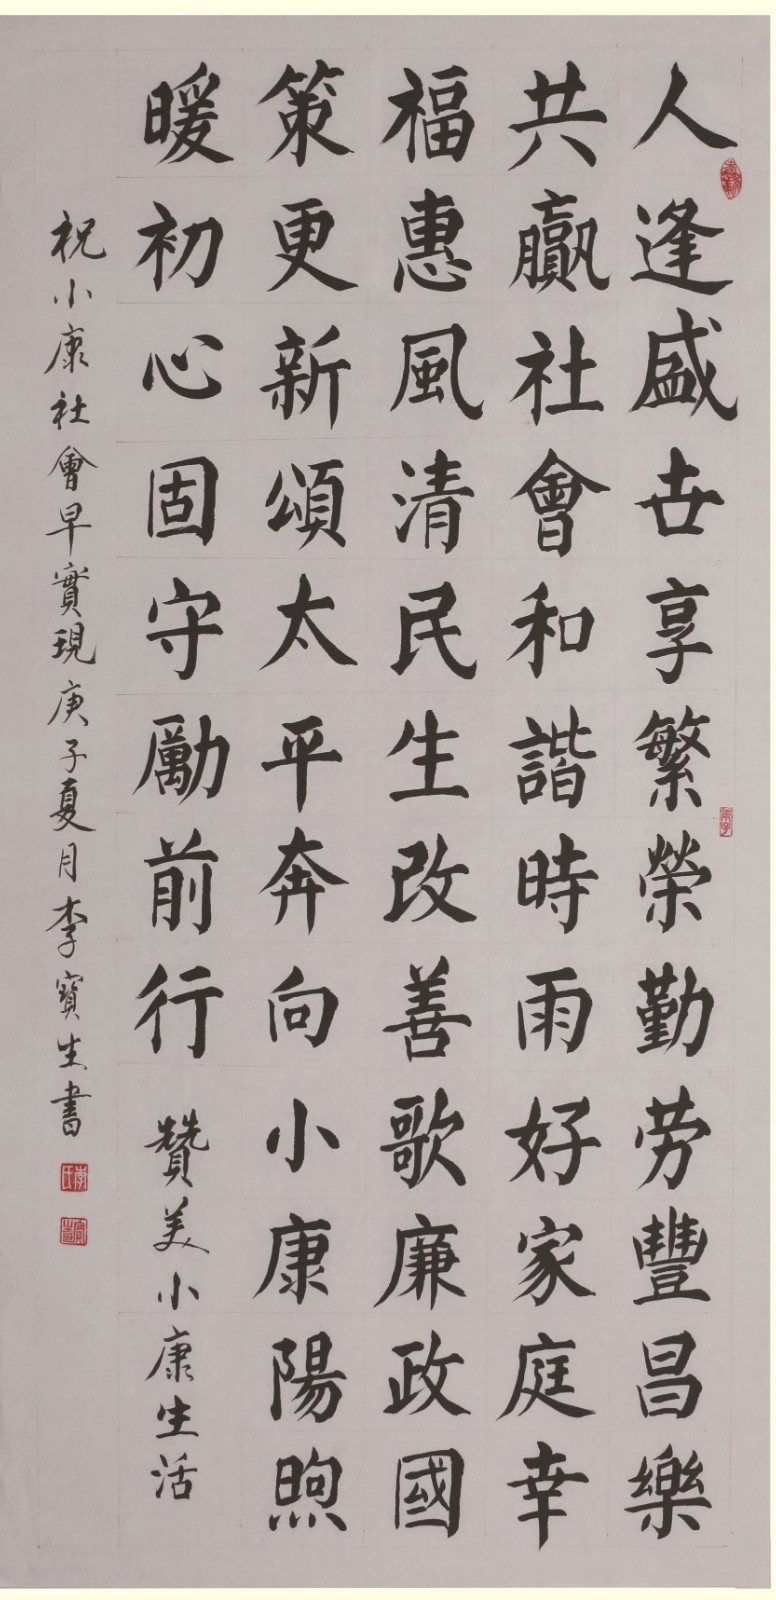 人逢盛世享繁榮勤劳豐昌樂
共贏社會和諧時雨好家庭幸
福惠風清民生改善歌廉政國
策更新頌太平奔向小康陽煦
暖初心固守勵前行 贊美小康生活
祝小康社會早實現庚子夏月李寶生書